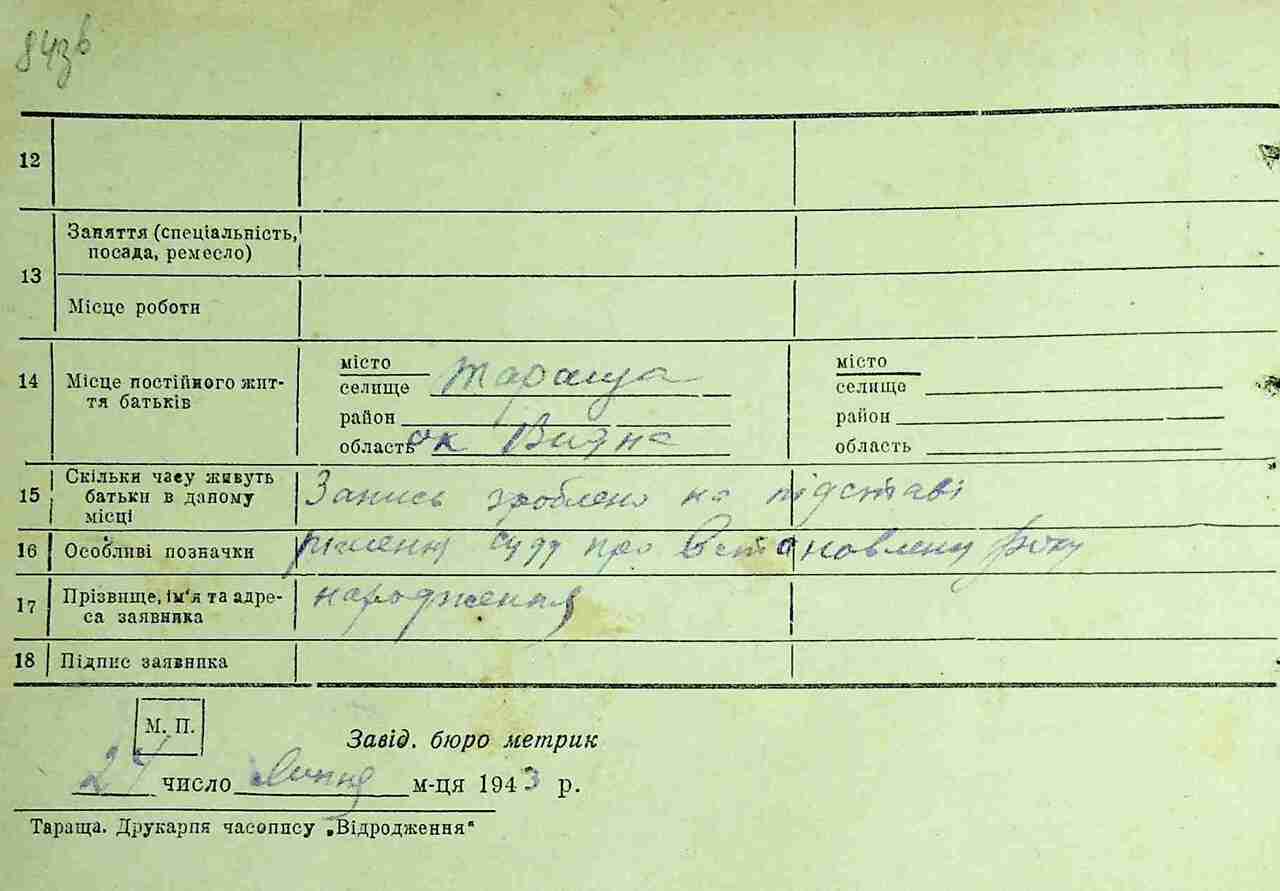 843б
12
Заняття (спеціальність,
посада, ремесло)
13
Місце роботи
14 Місце постійного жит-
тя батьків
місто
селище Тараща
район
область
місто
селище
район
область
15 Скільки часу живуть
батьки в даному
місці
Запись зроблено на підставі
16 Особливі позначки
рішення суду про встановлену року
17 Прізвище, ім'я та адре-
са заявника
народження
18 Підпис заявника
М. П.
Завід. бюро метрик
24 число Липня м-ця 1943 р.
Тараща. Друкарня часопису „Відродження"